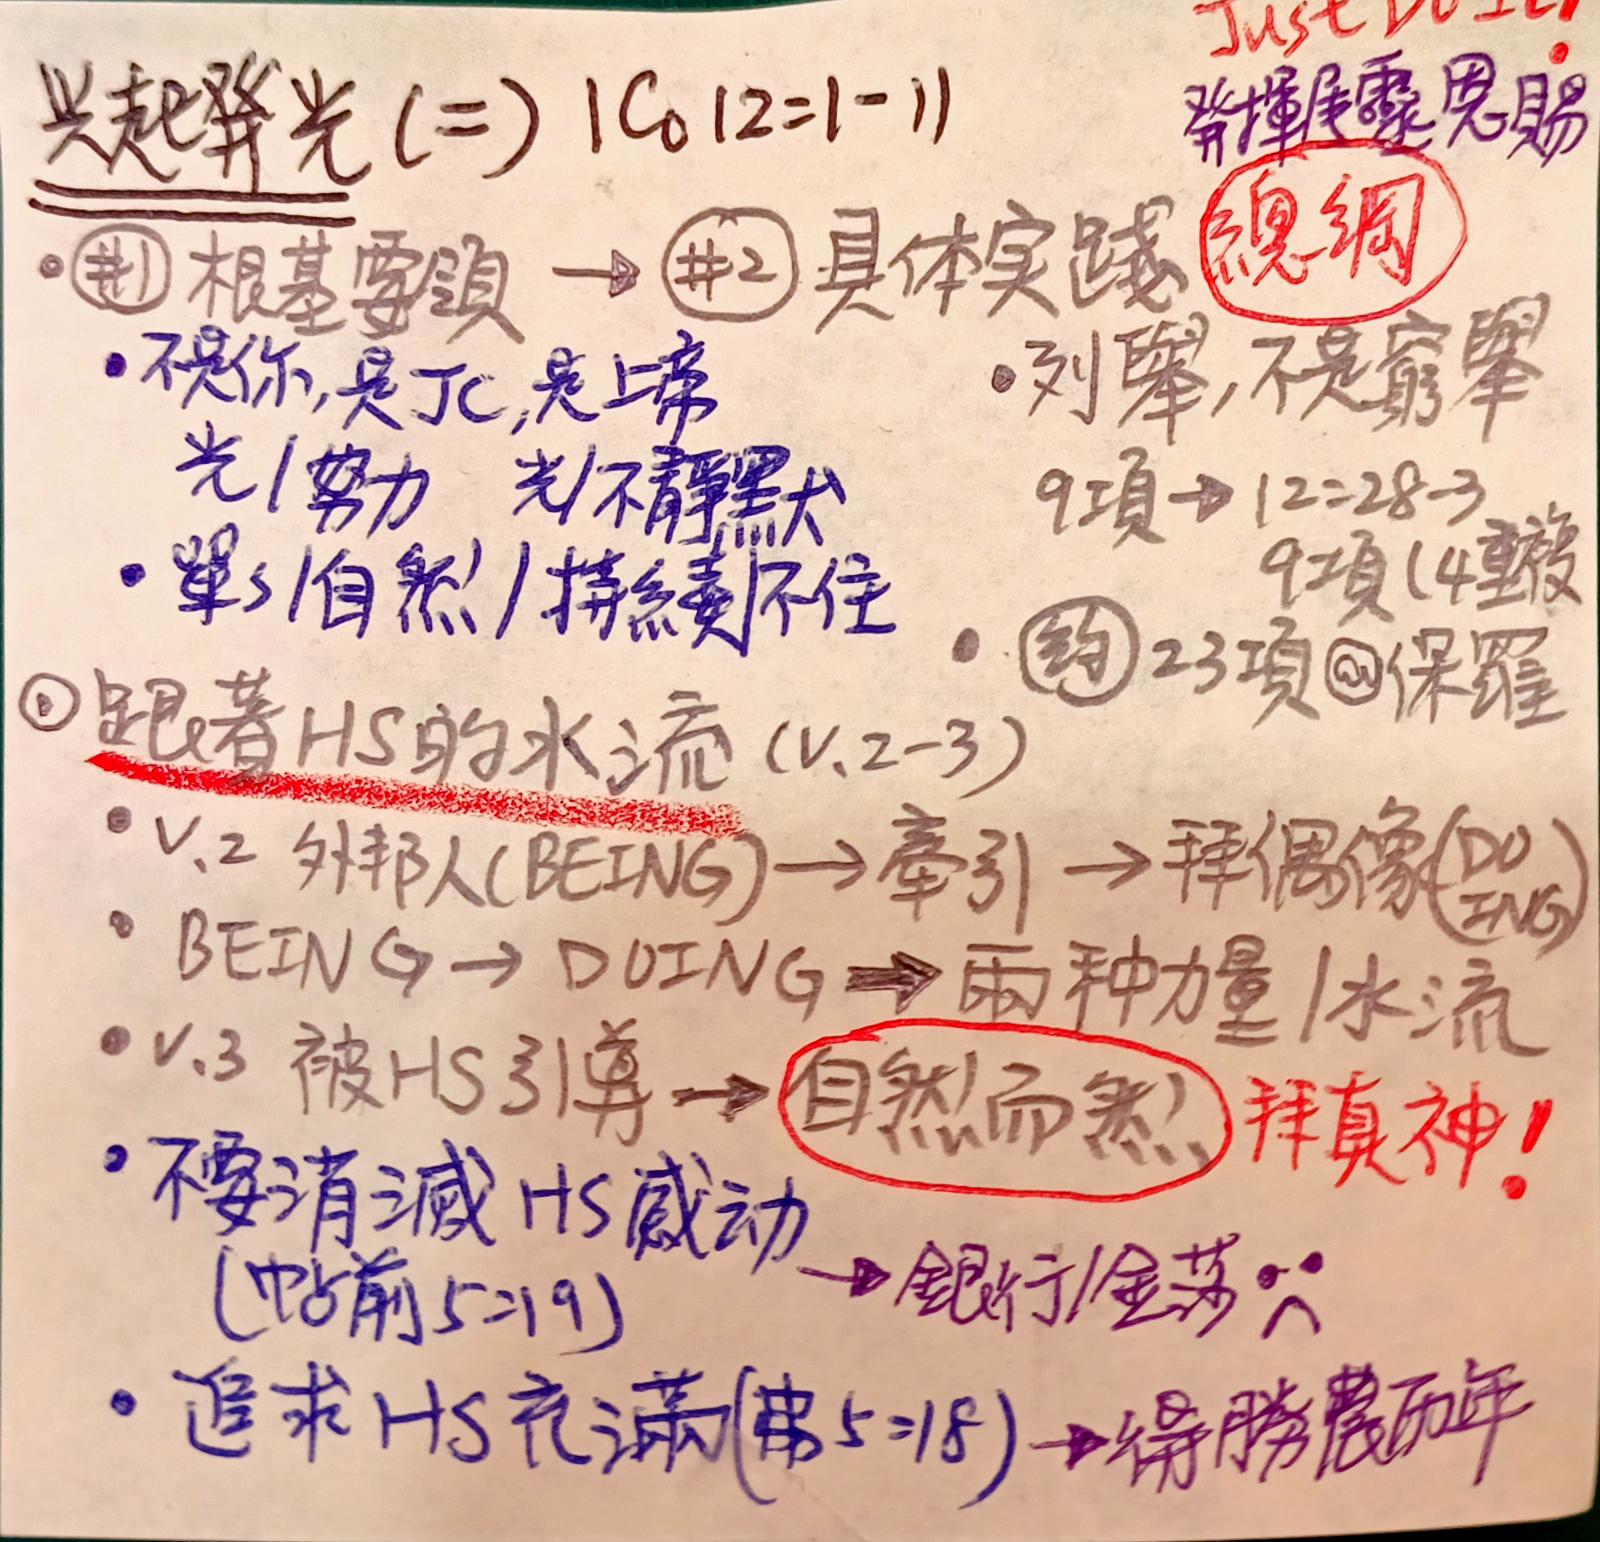 Just DO IT!
兴起發光(二) 1Co12=1-11
發揮屬靈恩賜
• #1 根基要領 → #2 具体实踐 總綱
• 不是你,是JC,是上帝
光/努力 光/不靜默
• 單s/自然/持續/不住
• 列舉,不是窮舉
9項→12=28-3
9項(4重複
• 約23項@保羅
跟著HS的水流(V.2-3)
• V.2 外邦人(BEING)→牽引→拜偶像(DOING)
• BEING→DOING→兩种力量/水流
• V.3 被HS引導→自然而然 拜真神!
• 不要消滅HS感动
(帖前5=19) →銀行/金莎
• 追求HS充滿(弗5=18)→得勝農历年